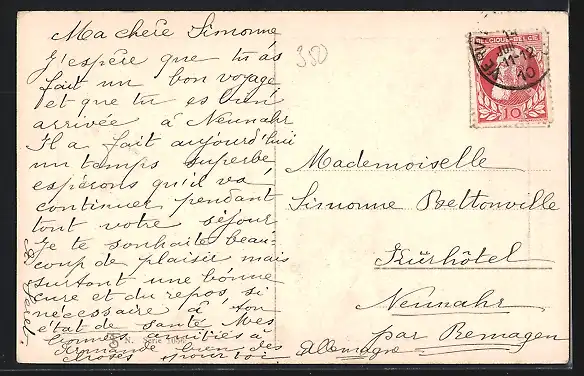 Ma chère Simonne
J'espère que tu ás
fait un bon voyage
et que tu es bien
arrivée à Neunahr
Il a fait aujourd'hui
un temps superbe
espérons qu'il va
continuer pendant
tout votre séjour
Je te souhaite beau-
coup de plaisir mais
surtout une bonne
cure et du repos, si
nécessaire à ton
état de santé Mes
bonnes amitiés à
Armande bien des
choses pour toi
350
N. Série
BELGIQUE-BELGIE
10
11-12
10
Mademoiselle
Simonne Bettonville
Kürhôtel
Neunahr
par Remagen
Allemagne